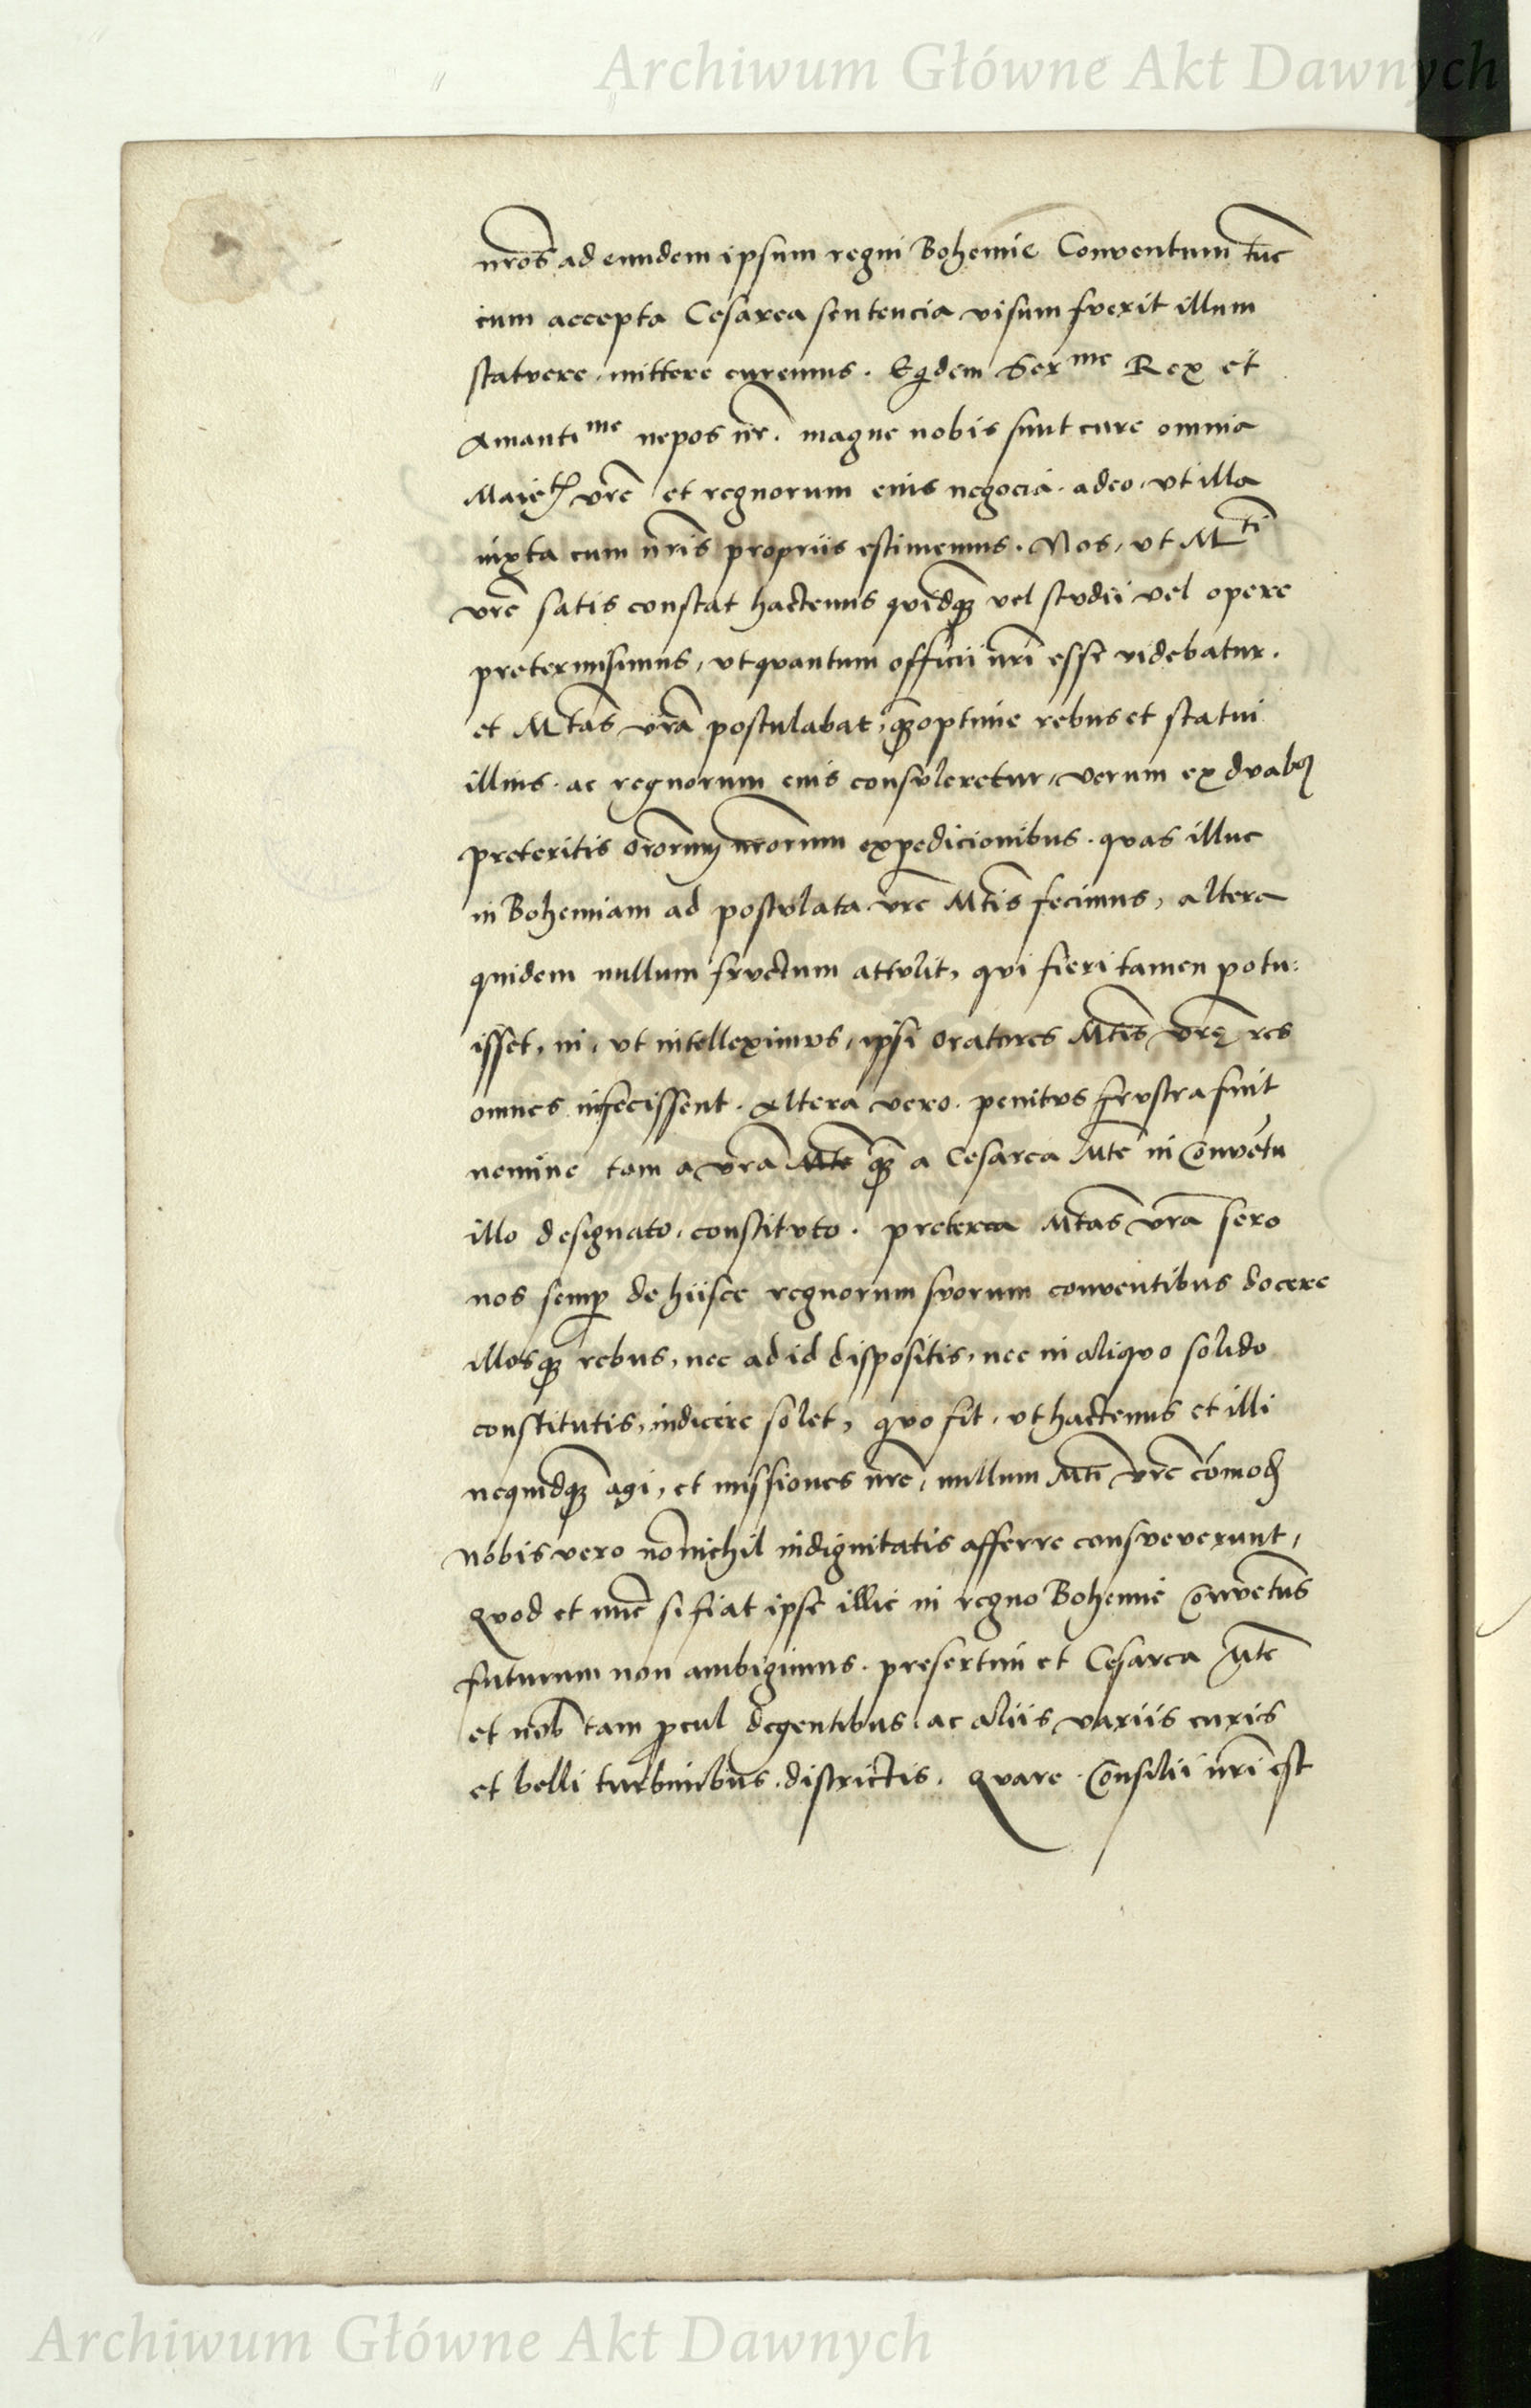 Archiwum Główne Akt Dawnych
nr̃os ad eundem ipsum regni Bohemie Conventum tũc
cum accepta Cesarea sentencia visum fverit illum
statvere, mittere curemus. Eqidem Serᵐᵉ Rex et
Amantiᵐᵉ nepos nr̃. magne nobis sunt cure omnia
vr̃e et regnorum eius negocia. adeo, vt illa
iuxta cum nr̃is propriis estimemus. Nos, vt Mᵗⁱ
vr̃e satis constat hactenus qvidq̃ vel stvdii vel opere
pretermisimus, vt qvantum officii nr̃i esse videbatur.
et Mtas vr̃a postulabat, q̃optime rebus et statui
illius. ac regnorum eius consvleretur, verum ex dvabꝫ
preteritis or̃orum nr̃orum expedicionibus. qvas illuc
in Bohemiam ad postvlata vr̃e Mtis fecimus, altera
quidem nullum frvctum attvlit, qvi fieri tamen potu:
isset, ni, vt intelleximvs, ipsi oratores Mtis vr̃ę res
omnes infecissent. Altera vero. penitvs frvstra fuit
nemine tam a vr̃a Mte q̃ a Cesarea Mte in Convẽtu
illo designato, constitvto. preterea Mtas vr̃a sero
nos semꝑ de hiisce regnorum svorum conventibus docere
illosq̃ rebus, nec ad id dispositis, nec in aliqvo solido
constitutis, indicere solet, qvo fit, vt hactenus et illi
nequidq̃ agi, et missiones nr̃e, nullum Mti vr̃e cõmodꝫ
nobis vero nõnichil indignitatis afferre consveverunt,
Qvod et nũc si fiat ipse illic in regno Bohemie Convẽtus
futurum non ambigimus. presertim et Cesarea Mte
et nob̃ tam ꝓcul degentibus, ac aliis variis curis
et belli turbinibus. districtis. Qvare Consilii nr̃i est
Archiwum Główne Akt Dawnych